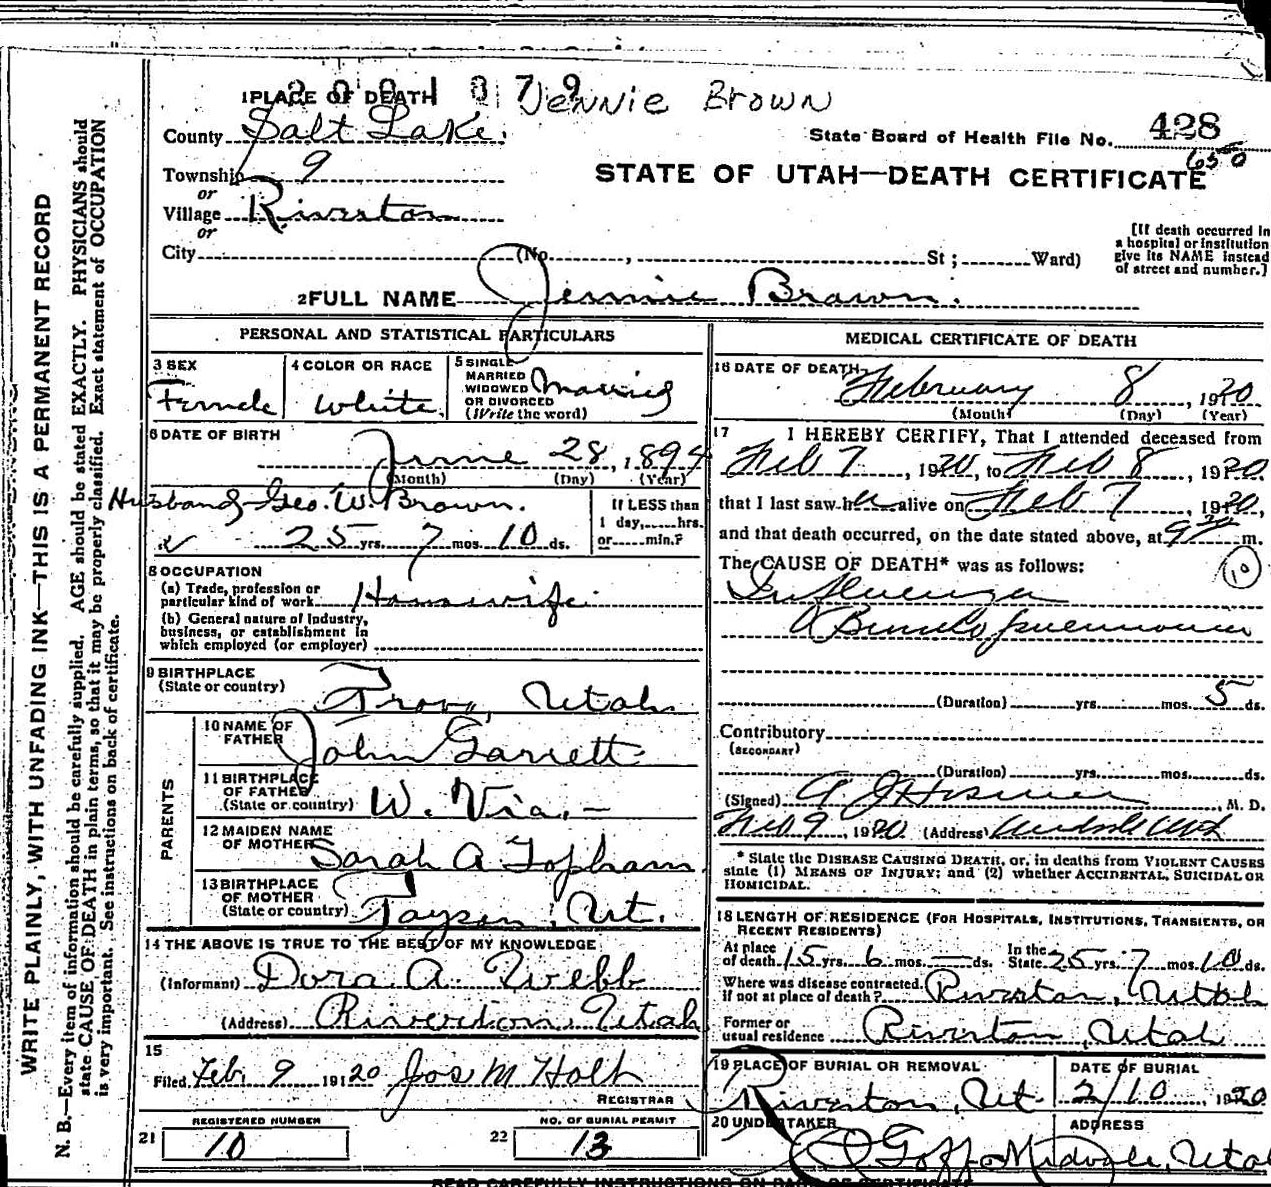 2001379 Jennie Brown
1 PLACE OF DEATH
County Salt Lake.
State Board of Health File No. 428
650
Township 9
or
STATE OF UTAH—DEATH CERTIFICATE
Village Riverton
or
City (No. , St ; Ward)
[If death occurred in
a hospital or institution
give its NAME instead
of street and number.]
2 FULL NAME Jennie Brown.
PERSONAL AND STATISTICAL PARTICULARS
3 SEX
Female
4 COLOR OR RACE
White.
5 SINGLE
MARRIED
WIDOWED
OR DIVORCED
(Write the word)
Married
6 DATE OF BIRTH
June 28, 1894
(Month) (Day) (Year)
Husband Geo. W. Brown.
25 yrs. 7 mos. 10 ds.
If LESS than
1 day, hrs.
or min.?
8 OCCUPATION
(a) Trade, profession or
particular kind of work Housewife
(b) General nature of Industry,
business, or establishment in
which employed (or employer)
9 BIRTHPLACE
(State or country)
Provo, Utah
PARENTS
10 NAME OF
FATHER
John Garrett
11 BIRTHPLACE
OF FATHER
(State or country) W. Via.
12 MAIDEN NAME
OF MOTHER
Sarah A Topham
13 BIRTHPLACE
OF MOTHER
(State or country) Payson, Ut.
14 THE ABOVE IS TRUE TO THE BEST OF MY KNOWLEDGE
(Informant) Dora A. Webb
(Address) Riverton, Utah
15
Filed Feb 9 19120 Jos M Holt
REGISTRAR
REGISTERED NUMBER
21 10
NO. OF BURIAL PERMIT
22 13
MEDICAL CERTIFICATE OF DEATH
16 DATE OF DEATH
February 8, 1920
(Month) (Day) (Year)
17 I HEREBY CERTIFY, That I attended deceased from
Feb 7, 1920, to Feb 8 1920
that I last saw her alive on Feb 7 1920,
and that death occurred, on the date stated above, at 9 30 m.
The CAUSE OF DEATH* was as follows:
10
Influenza
& Broncho pneumonia
(Duration) yrs. mos. 5 ds.
Contributory
(SECONDARY)
(Duration) yrs. mos. ds.
(Signed) , M. D.
Feb 9, 1920 (Address)
* State the DISEASE CAUSING DEATH, or, in deaths from VIOLENT CAUSES
state (1) MEANS OF INJURY; and (2) whether ACCIDENTAL, SUICIDAL OR
HOMICIDAL.
18 LENGTH OF RESIDENCE (FOR HOSPITALS, INSTITUTIONS, TRANSIENTS, OR
RECENT RESIDENTS)
At place
of death 15 yrs. 6 mos. — ds.
In the
State 25 yrs. 7 mos. 10 ds.
Where was disease contracted,
if not at place of death? Riverton, Utah
Former or
usual residence Riverton, Utah
19 PLACE OF BURIAL OR REMOVAL
Riverton, Ut.
DATE OF BURIAL
2/10, 1920
20 UNDERTAKER
Goff
ADDRESS
Midvale, Utah
READ CAREFULLY INSTRUCTIONS ON BACK OF CERTIFICATE
WRITE PLAINLY, WITH UNFADING INK—THIS IS A PERMANENT RECORD
N. B.—Every item of information should be carefully supplied. AGE should be stated EXACTLY. PHYSICIANS should
state CAUSE OF DEATH in plain terms, so that it may be properly classified. Exact statement of OCCUPATION
is very important. See instructions on back of certificate.